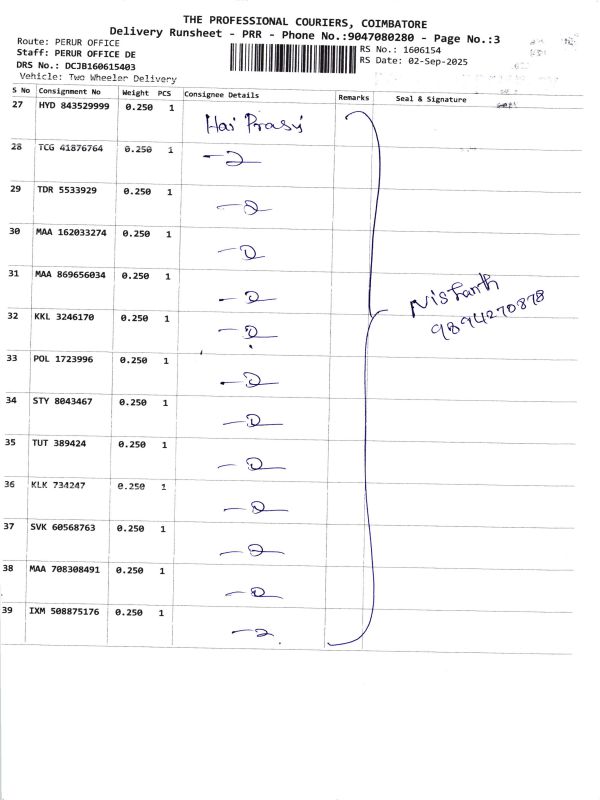 THE PROFESSIONAL COURIERS, COIMBATORE
Delivery Runsheet - PRR - Phone No.:9047080280 - Page No.:3
Route: PERUR OFFICE
Staff: PERUR OFFICE DE
DRS No.: DCJB160615403
Vehicle: Two Wheeler Delivery
RS No.: 1606154
RS Date: 02-Sep-2025
S No Consignment No Weight PCS Consignee Details Remarks Seal & Signature
27 HYD 843529999 0.250 1
28 TCG 41876764 0.250 1
29 TDR 5533929 0.250 1
30 MAA 162033274 0.250 1
31 MAA 869656034 0.250 1
32 KKL 3246170 0.250 1
33 POL 1723996 0.250 1
34 STY 8043467 0.250 1
35 TUT 389424 0.250 1
36 KLK 734247 0.250 1
37 SVK 60568763 0.250 1
38 MAA 708308491 0.250 1
39 IXM 508875176 0.250 1
9894270878